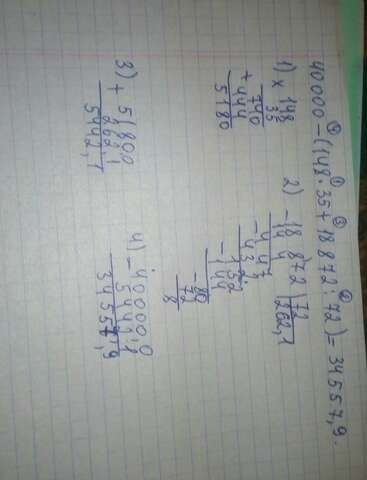 ④ ① ③ ②
40000-(148·35+18872:72)=34557,9.
1) × 148
35
740
+ 444
5180
2) - 18 872 | 72
144 | 262,1
- 447
432
- 152
144
- 80
72
8
3) + 5180,0
262,1
5442,1
4) - 40000,0
5442,1
34557,9